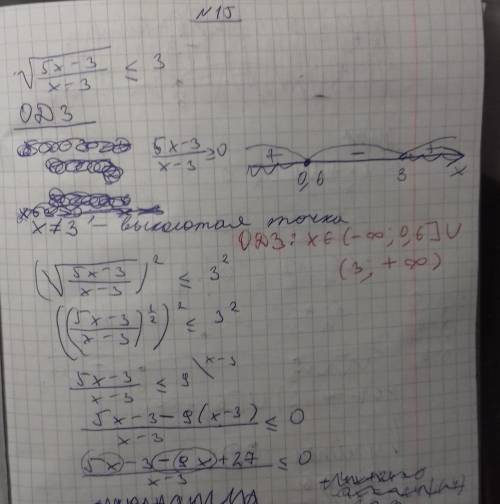 N 15
√((5x-3)/(x-3)) ≤ 3
ОДЗ
(5x-3)/(x-3) ≥ 0
+ - +
0,6 3 x
x≠3 - выколотая точка
ОДЗ: x∈(-∞; 0,6]∪
(3; +∞)
(√((5x-3)/(x-3)))² ≤ 3²
(((5x-3)/(x-3))^(1/2))² ≤ 3²
(5x-3)/(x-3) ≤ 9 \x-3
(5x-3-9(x-3))/(x-3) ≤ 0
(5x-3-9x+27)/(x-3) ≤ 0